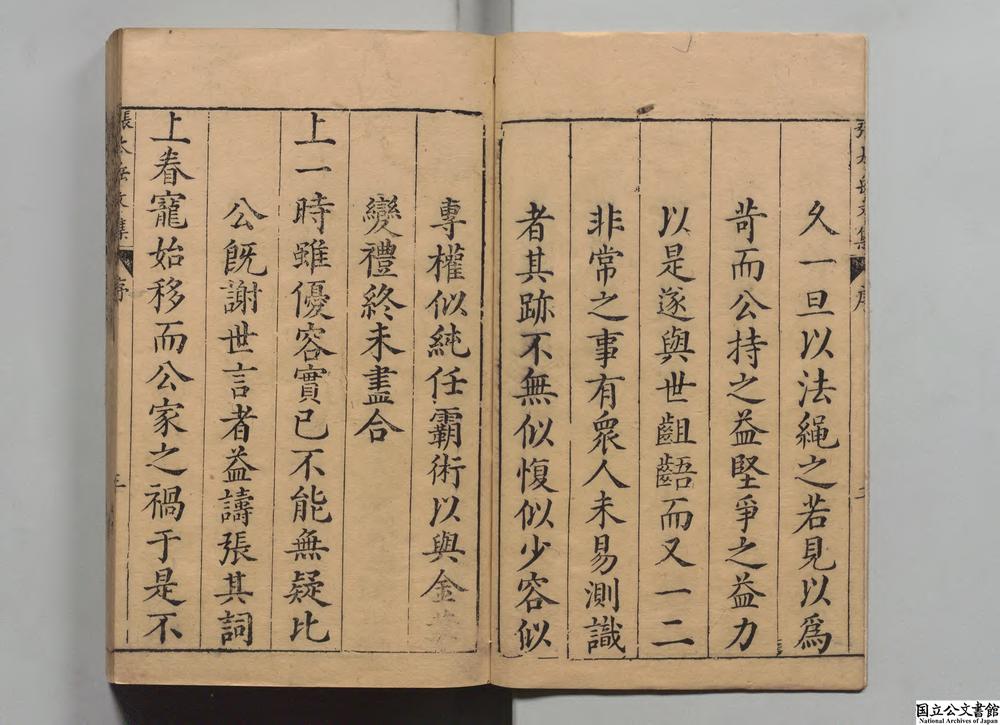 久一旦以法繩之若見以爲
苛而公持之益堅爭之益力
以是遂與世齟齬而又一二
非常之事有衆人未易測識
者其跡不無似愎似少容似
專權似純任霸術以與金革
變禮終未盡合
上一時雖優容實已不能無疑比
公旣謝世言者益譸張其詞
上眷寵始移而公家之禍于是不
序
国立公文書館
National Archives of Japan